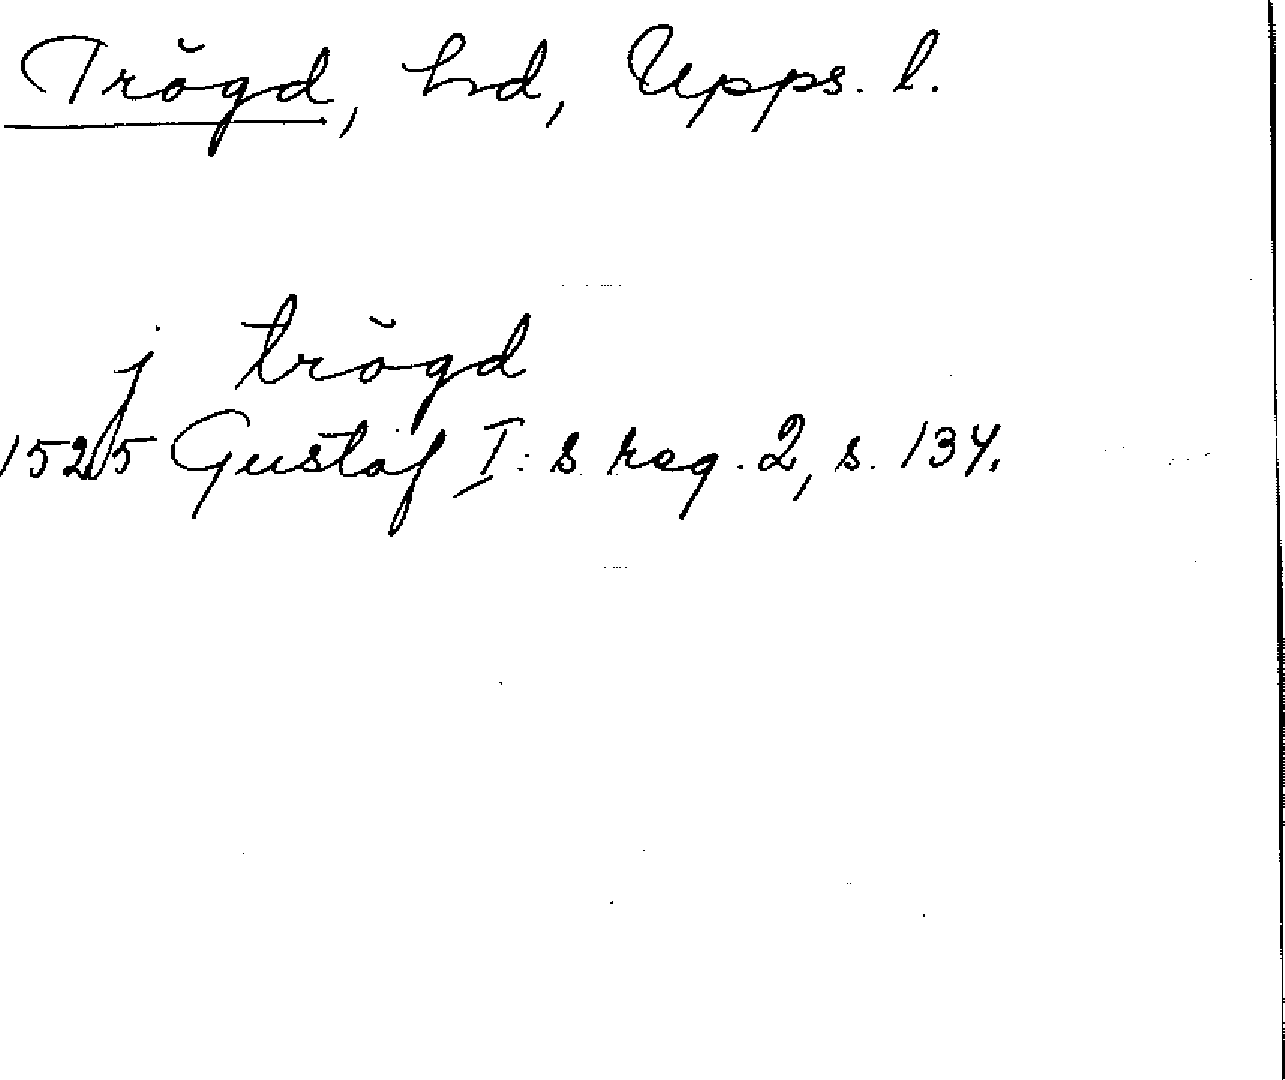 Trögd, hd, Upps. l.
j trögd
1525 Gustaf I:s reg. 2, s. 134.